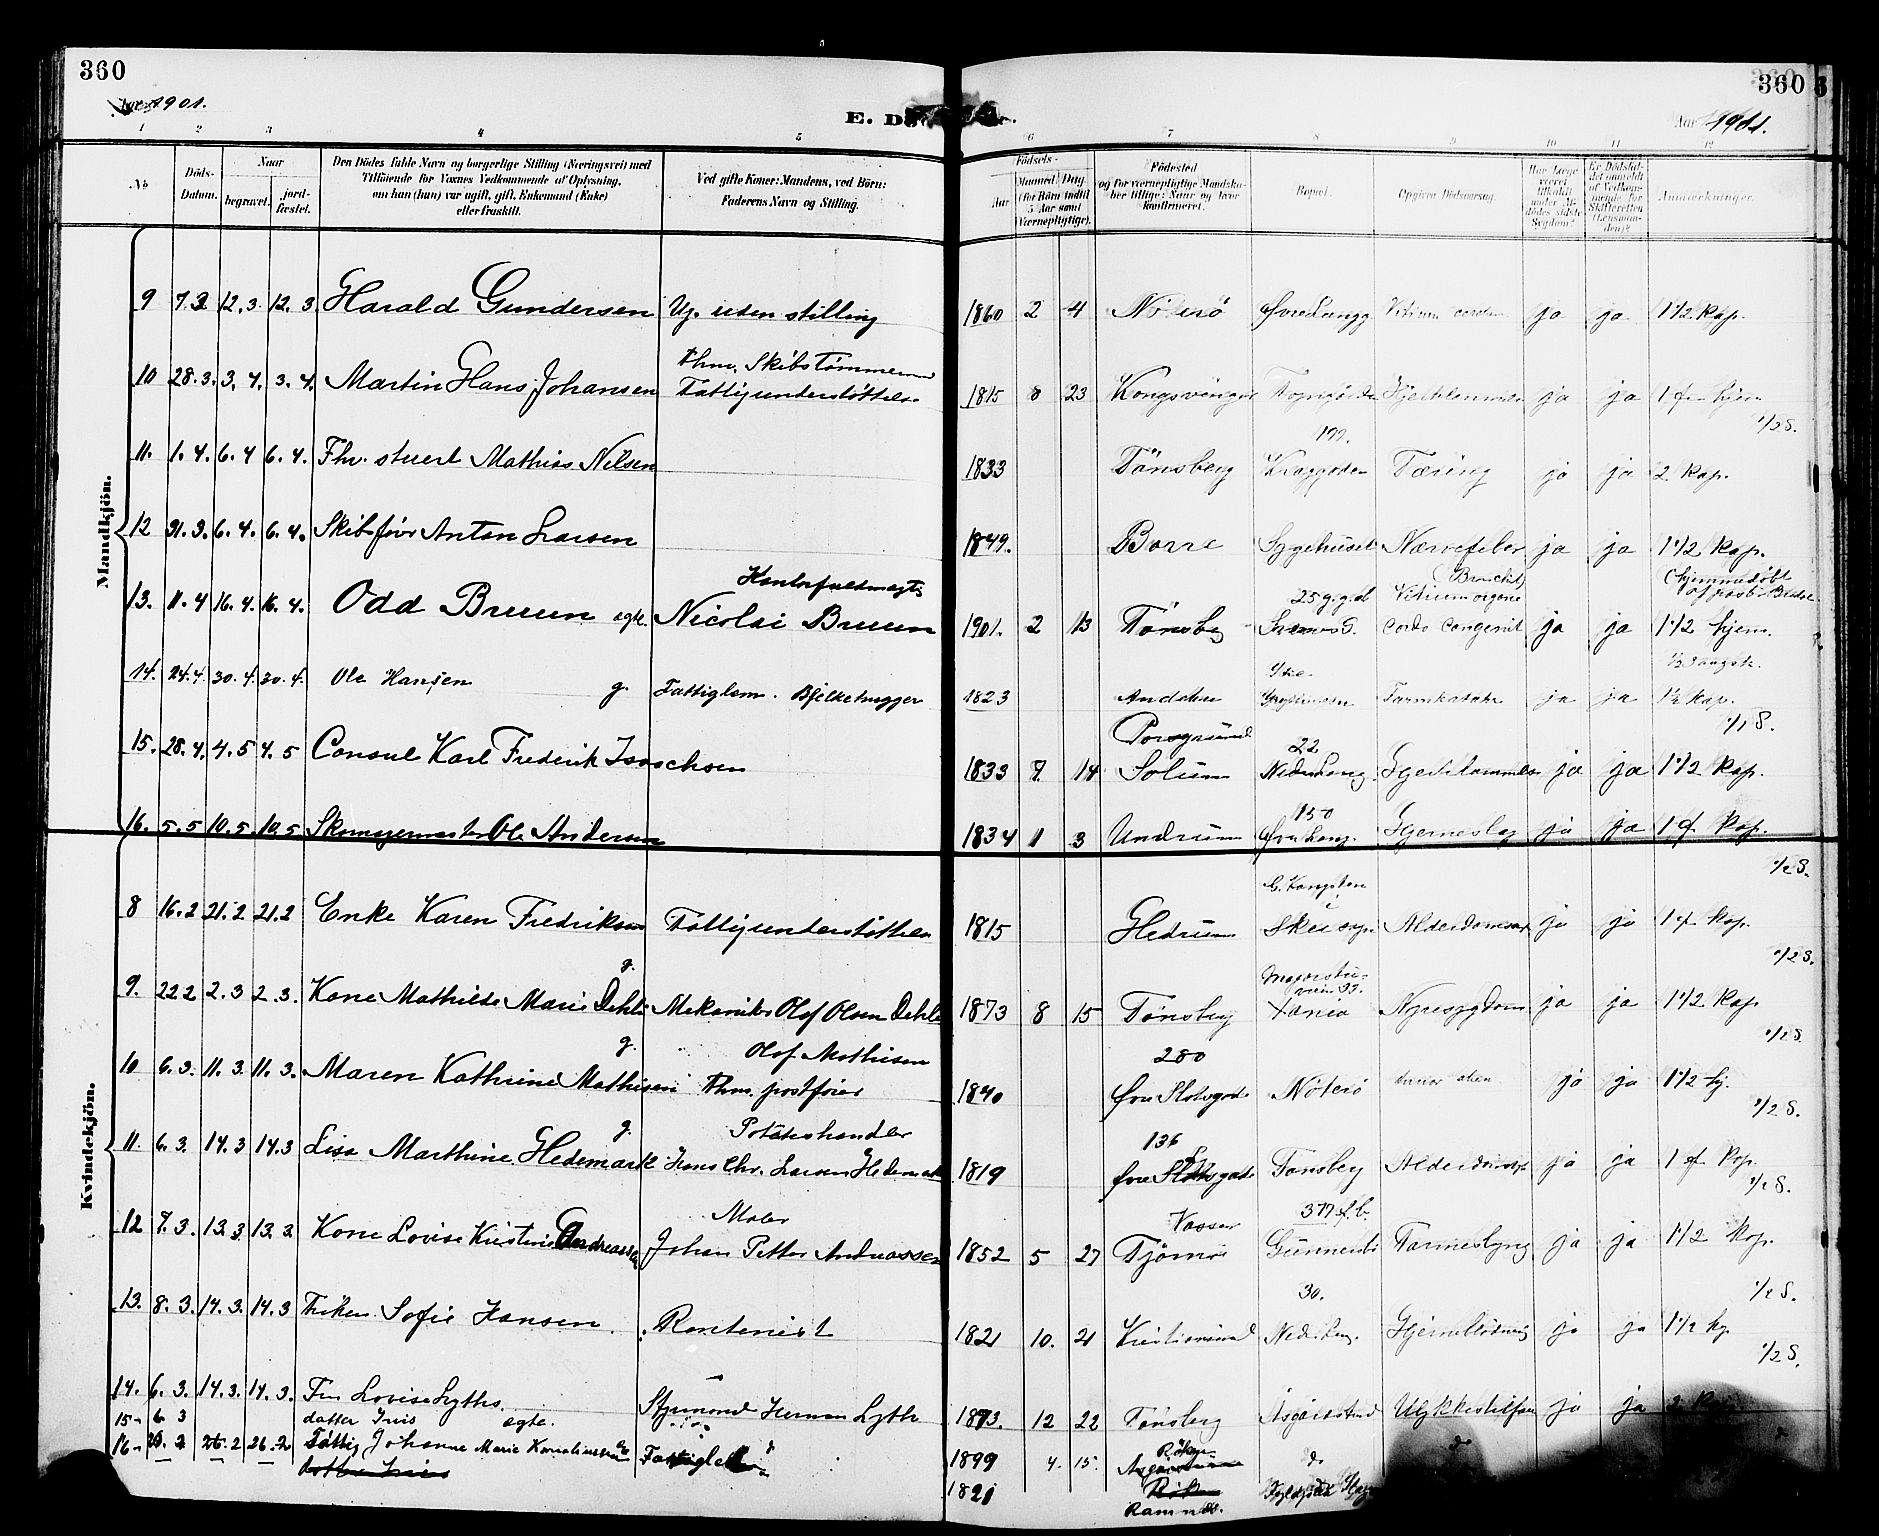 360
1901.
E. D
360
Aar 1901.
1 2 3 4 5 6 7 8 9 10 11 12
No
Döds-Datum.
Naar
begravet.
jord-fæstet.
Den Dödes fulde Navn og borgerlige Stilling (Næringsvei) med
Tilföiende for Voxnes Vedkommende af Oplysning,
om han (hun) var ugift, gift, Enkemand (Enke)
eller fraskilt.
Ved gifte Koner: Mandens, ved Börn:
Faderens Navn og Stilling.
Födsels-
Aar
Maaned
Dag
(for Börn indtil
5 Aar samt
Værnepligtige).
Födested
og for værnepligtige Mandska-
ber tillige: Naar og hvor
konfirmeret.
Bopæl.
Opgiven Dödsaarsag.
Har Læge
været
tilkaldt
under Af-
dödes sidste
Sygdom?
Er Dödsfal-
det anmeldt
af Vedkom-
mende for
Skifteretten
(Lensman-
den)?
Anmærkninger.
Mandkjön.
9 7.3 12.3 12.3 Harald Gundersen Ug. uden stilling 1860 2 4 Nöterö Øvre Langg Vitium cordis ja ja 1 1/2 Kap.
10 28.3. 3.4. 3.4. Martin Hans Johansen Fhv. Skibstømmermand
Fattigunderstøttelse 1815 8 23 Kongsvinger Hjertelammelse ja ja 1 f hjem
1/2 S.
11. 1.4. 6.4 6.4. Fhv. stuert Mathias Nelsen 1833 Tönsberg Tæring ja ja 2 Kap.
12 31.3. 6.4. 6.4. Skibsfører Anton Larsen 1849. Borre Sygehuset Nervefeber ja ja 1 1/2 Kap.
13. 11.4 16.4. 16.4. Odd Bruun ægte. Kontorfuldmægtig
Nicolai Bruun 1901. 2 13 Tönsbg Svends G. Vitium organic
cordis Congenit ja ja 1 1/2 hjem.
14. 24.4 30.4. 30.4. Ole Hansen g. Fattiglem. Bjelkehugger 1823 Andebu Tarmkatahr ja ja 1 1/2 Kap.
1/1 S.
15. 28.4. 4.5 4.5 Consul Karl Frederik Isaachsen 1833 9. 14 Porsgrund
Solum 22
Nedre Lang. Hjertelammelse ja ja 1 1/2 Kap.
16. 5.5 10.5. 10.5 Skomagermester Ole Andersen 1834 1 3 Undrum 150
Øvre Lang. Hjerneslag ja ja 1 f Kap.
1/2 S.
Kvindekjön.
8 16.2 21.2 21.2 Enke Karen Fredriksen Fattigunderstøttelse 1815 Hedrum Alderdomssv ja ja 1 f Kap.
1/2 S.
9. 22 2 2.3 2.3. Kone Mathilde Marie Dehli g. Mekaniker Olof Olsen Dehli 1873 8 15 Tönsbg Xania Nyresygdom ja ja 1 1/2 Kap
1/2 S
10 6.3. 11.3. 11.3. Maren Kathrine Mathisen g. Olof Mathisen
Fhv. postfører 1840 280
Øvre Slotsgade Nöterö ja ja 1 1/2 hj.
1/2 S.
11. 6.3. 14.3 14.3 Lisa Marthine Hedemark g. Poteteshandler
Hans Chr. Larsen Hedemark 1819 136
Øvre gade Tønsberg Alderdomssv ja ja 1 f Kap.
1/2 S.
12 7.3. 13.3. 13.3 Kone Lovise Kirstine Andreassen Maler
Johan Petter Andreassen 1852 5 27 Vasser
Tjömö 377 f.b.
Gunnersb Tarmeslyng ja ja 1 1/2 Kap.
13. 8.3. 14.3. 14.3 Frøken Sofie Hansen Rentenist 1821 10. 21 Kristiansund 30.
Nedre Lang. Hjerneblödning ja ja 1 1/2 kp.
1/2 S.
14. 6.3. 14.3. 14.3. Fru Lovise Lyths Styrmand Herman Lyth 1873. 12 22 Tönsberg Åsgårdstrand Ulykkestilfæ ja ja 2
15 6 3 datter Iris ægte. 1899 4. 15.
16 20.2 26.2 26.2 Fattig Johanne Marie Korneliussen Fattiglem 1821 Ramnæs.